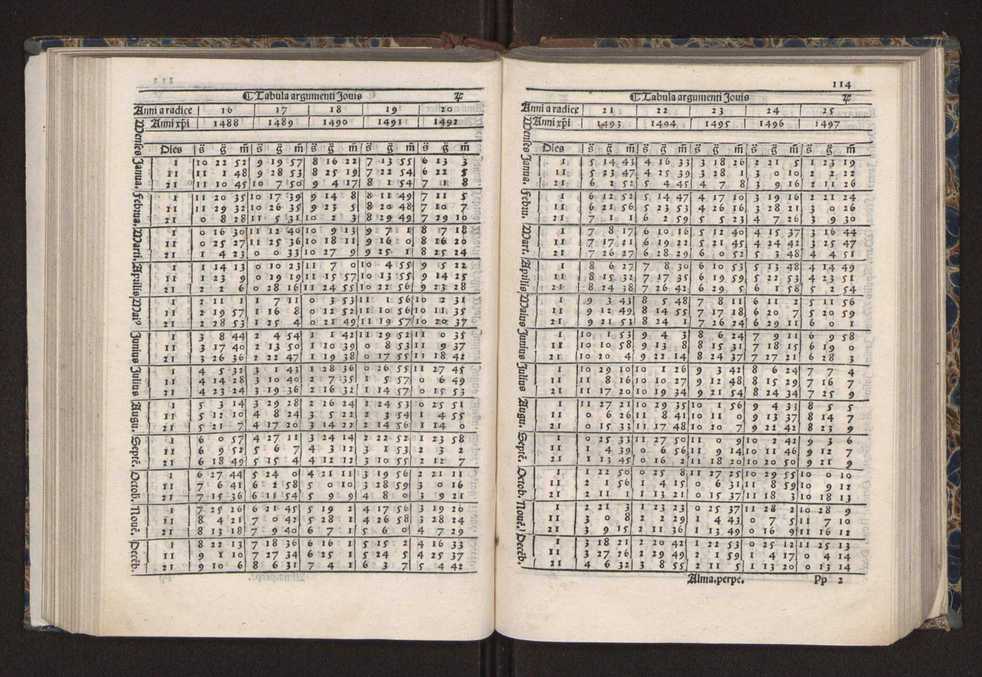 ☾ Tabula argumenti Jouis ♃
Anni a radice 16 17 18 19 20
Anni xp̄i 1488 1489 1490 1491 1492
Menses Dies s̄ ḡ m̄ s̄ ḡ m̄ s̄ ḡ m̄ s̄ ḡ m̄ s̄ ḡ m̄
Janua. 1 10 22 52 9 19 57 8 16 22 7 13 55 6 13 3
11 11 1 48 9 28 53 8 25 19 7 22 54 6 22 5
21 11 10 45 10 7 50 9 4 17 8 1 54 7 1 8
Februa. 1 11 20 35 10 17 39 9 14 8 8 11 49 7 11 5
11 11 29 32 10 26 35 9 23 5 8 20 48 7 20 7
21 0 8 28 11 5 31 10 2 3 8 29 49 7 29 10
Marti. 1 0 16 30 11 12 40 10 9 13 9 7 1 8 7 18
11 0 25 27 11 25 36 10 18 11 9 16 0 8 16 20
21 1 4 23 0 0 33 10 27 9 9 25 1 8 25 24
Aprilis 1 1 14 13 0 10 23 11 7 0 10 4 55 9 5 22
11 1 23 9 0 19 19 11 15 57 10 13 55 9 14 25
21 2 2 6 0 28 16 11 24 55 10 22 56 9 23 28
Mai⁹ 1 2 11 1 1 7 11 0 3 53 11 1 56 10 2 31
11 2 19 57 1 16 8 0 12 52 11 10 56 10 11 35
21 2 28 53 1 25 4 0 21 49 11 19 57 10 20 37
Junius 1 3 8 44 2 4 54 1 1 42 11 29 52 11 0 35
11 3 17 40 2 13 50 1 10 39 0 8 53 11 9 37
21 3 26 36 2 22 47 1 19 38 0 17 55 11 18 42
Julius 1 4 5 32 3 1 43 1 28 36 0 26 55 11 27 45
11 4 14 28 3 10 40 2 7 35 1 5 57 0 6 49
21 4 23 24 3 19 36 2 16 32 1 14 57 0 15 53
Augu. 1 5 3 14 3 29 28 2 26 24 1 24 53 0 25 51
11 5 12 10 4 8 24 3 5 22 2 3 54 1 4 55
21 5 21 7 4 17 20 3 14 22 2 14 56 1 14 0
Septē. 1 6 0 57 4 27 11 3 24 14 2 22 52 1 23 58
11 6 9 52 5 6 7 4 3 12 3 1 53 2 3 2
21 6 18 49 5 15 4 4 12 12 3 10 55 2 12 7
Octob. 1 6 27 44 5 24 0 4 21 11 3 19 56 2 21 11
11 7 6 41 6 2 58 5 0 10 3 28 59 3 0 16
21 7 15 36 6 11 54 5 9 9 4 8 0 3 9 21
Nouē. 1 7 25 26 6 21 45 5 19 2 4 17 56 3 19 26
11 8 4 21 7 0 42 5 28 1 4 26 58 3 28 24
21 8 13 18 7 9 40 6 7 1 5 6 0 4 7 29
Decēb. 1 8 22 13 7 18 36 6 16 1 5 15 2 4 16 33
11 9 1 10 7 27 34 6 25 1 5 24 5 4 25 37
21 9 10 6 8 6 31 7 4 1 6 3 7 5 4 42
114
☾ Tabula argumenti Jouis ♃
Anni a radice 21 22 23 24 25
Anni xp̄i 1493 1494 1495 1496 1497
Menses Dies s̄ ḡ m̄ s̄ ḡ m̄ s̄ ḡ m̄ s̄ ḡ m̄ s̄ ḡ m̄
Janua. 1 5 14 43 4 16 33 3 18 26 2 21 5 1 23 19
11 5 23 47 4 25 39 3 28 1 3 0 10 2 2 22
21 6 2 52 5 4 45 4 7 8 3 9 16 2 11 26
Febru. 1 6 12 52 5 14 47 4 17 10 3 19 16 2 21 24
11 6 21 56 5 23 53 4 26 16 3 28 21 3 0 26
21 7 1 1 6 2 59 5 5 23 4 7 26 3 9 30
Mart. 1 7 8 17 6 10 16 5 12 40 4 15 37 3 16 44
11 7 17 21 6 19 22 5 21 45 4 24 42 3 25 47
21 7 26 27 6 28 29 6 0 52 5 3 48 4 4 51
Aprilis 1 8 6 27 7 8 30 6 10 53 5 13 48 4 14 49
11 8 15 32 7 17 35 6 19 59 5 22 53 4 23 51
21 8 24 38 7 26 41 6 29 5 6 1 58 5 2 54
Maius 1 9 3 43 8 5 48 7 8 11 6 11 2 5 11 56
11 9 12 49 8 14 55 7 17 18 6 20 7 5 20 59
21 9 21 53 8 24 1 7 26 24 6 29 11 6 0 1
Junius 1 10 1 53 9 4 3 8 6 24 7 9 11 6 9 58
11 10 10 58 9 13 8 8 15 31 7 18 15 6 19 0
21 10 20 4 9 22 14 8 24 37 7 27 21 6 28 3
Julius 1 10 29 10 10 1 26 9 3 42 8 6 24 7 7 4
11 11 8 16 10 10 27 9 12 48 8 15 29 7 16 7
21 11 17 20 10 19 34 9 21 54 8 24 34 7 25 9
Augu. 1 11 27 21 10 29 35 10 1 56 9 4 33 8 5 5
11 0 6 26 11 8 41 10 11 0 9 13 37 8 14 7
21 0 15 33 11 17 48 10 20 7 9 22 42 8 23 9
Septē. 1 0 25 33 11 27 50 11 0 9 10 2 42 9 3 6
11 1 4 39 0 6 56 11 9 14 10 11 46 9 12 7
21 1 13 45 0 16 2 11 18 20 10 20 50 9 21 9
Octob. 1 1 22 50 0 25 8 11 27 25 10 29 55 10 0 10
11 2 1 56 1 4 15 0 6 31 11 8 59 10 9 12
21 2 11 1 1 13 21 0 15 37 11 18 3 10 18 13
Nouē. 1 2 21 3 1 23 23 0 25 37 11 28 2 10 28 9
11 3 0 8 2 2 29 1 4 43 0 7 5 11 7 10
21 3 9 15 2 11 36 1 13 49 0 16 9 11 16 12
Decēb. 1 3 18 21 2 20 42 1 22 53 0 25 12 11 25 13
11 3 27 26 2 29 49 2 1 59 1 4 17 0 4 14
21 4 6 32 3 8 55 2 11 5 1 13 20 0 13 14
Alma. perpe. Pp 2